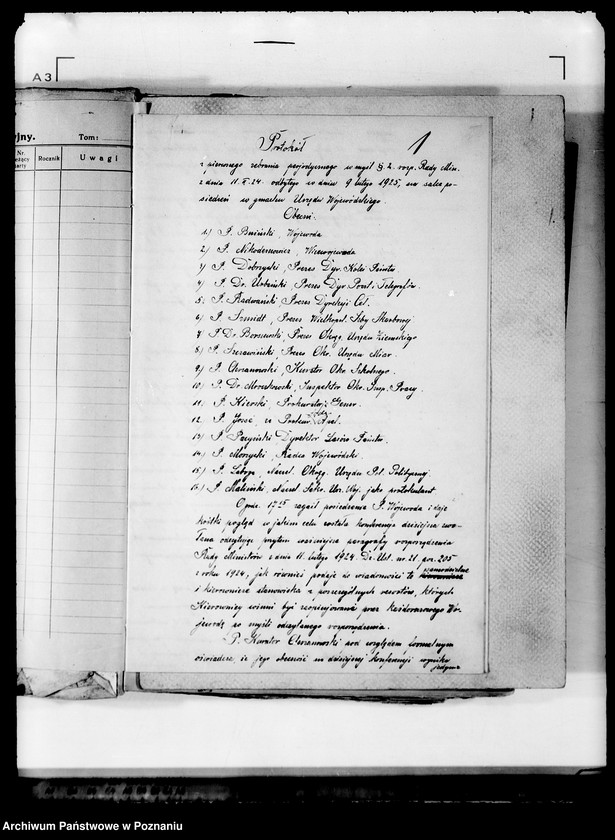 A 3
yjny.
Tom:
Nr.
Rocznik
Uwagi
Protokół
1
z pierwszego zebrania perjodycznego w myśl §. 2. rozp. Rady Min.
z dnia 11. II. 24. odbytego w dniu 9 lutego 1925, na sali po-
siedzeń w gmachu Urzędu Wojewódzkiego.
Obecni:
1.) P. Bniński, Wojewoda
2.) P. Nikodemowicz, Wicewojewoda
3) P. Dobrzycki, Prezes Dyr. Kolei Państw.
4) P. Dr. Urbański Prezes Dyr. Poczt i Telegrafów.
5. P. Radwański Prezes Dyrekcji Ceł.
6.) P. Szmidt, Prezes Wielkopol. Izby Skarbowej
7. P. Dr. Prezes Okręg. Urzędu Ziemskiego
8.) P. Prezes Okr. Urzędu Miar.
9.) P. Chrzanowski, Kurator Okr. Szkolnego.
10.) P. Dr. Inspektor Okr. Insp. Pracy.
11.) P. Kierski, Prokuratorji Gener.
12.) P. Prokur. Apel.
13.) P. Dyrektor Lasów Państw.
14.) P. Radca Wojewódzki.
15.) P. Naczel. Okręg. Urzędu Pol. Politycznej
16.) P. Naczel. Urz. Woj. jako protokulant
O godz. 17 zagaił posiedzenie P. Wojewoda i daje
krótki pogląd w jakim celu została konferencja dzisiejsza zwo-
łana odczytując przytem ważniejsze paragrafy rozporządzenia
Rady Ministrów z dnia 11. lutego 1924. Dz. Ust. nr. 21 poz. 205
z roku 1924, jak również podaje do wiadomości te samodzielne
i kierownicze stanowiska z poszczególnych resortów, których
Kierownicy winni być zaopinjowani przez każdorazowego Wo-
jewodę po myśli odczytanego rozporządzenia.
P. Kurator Chrzanowski pod względem formalnym
oświadcza, że jego obecność na dzisiejszej konferencji wynika
jedynie
Archiwum Państwowe w Poznaniu